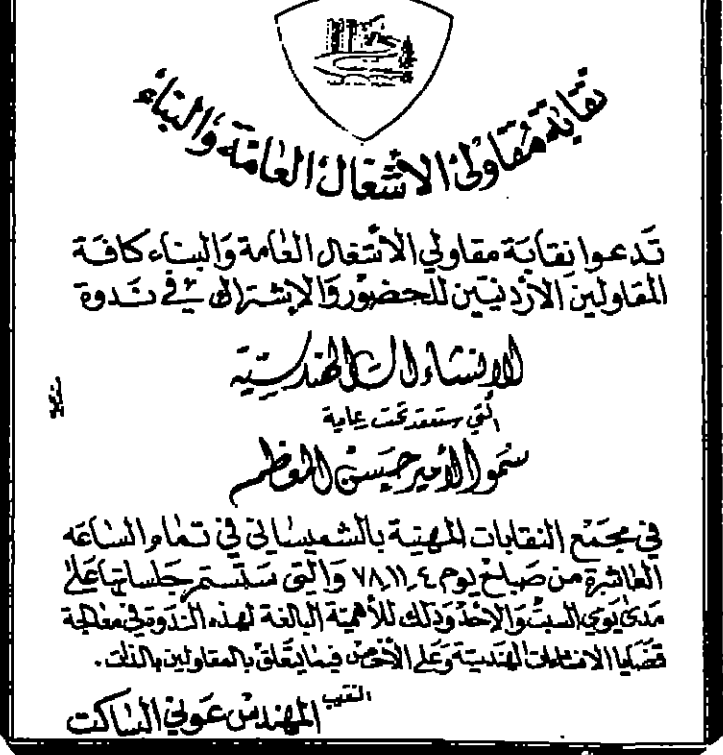 نقابة مقاولي الأشغال العامة والبناء
تدعوا نقابة مقاولي الأشغال العامة والبناء كافة
المقاولين الأردنيين للحضور والإشتراك في ندوة
الانشاءات الهندسية
التي ستعقد تحت رعاية
سمو الأمير حسن المعظم
في مجمع النقابات المهنية بالشميساني في تمام الساعه
العاشرة من صباح يوم ٤ر١١ر٧٨ والتي ستستمر جلساتها على
مدى يومي السبت والاحد وذلك للأهمية البالغة لهذه الندوة في معالجة
قضايا الانشاءات الهندسية وعلى الأخص فيما يتعلق بالمقاولين بالذات.
النقيب
المهندس عوني الساكت